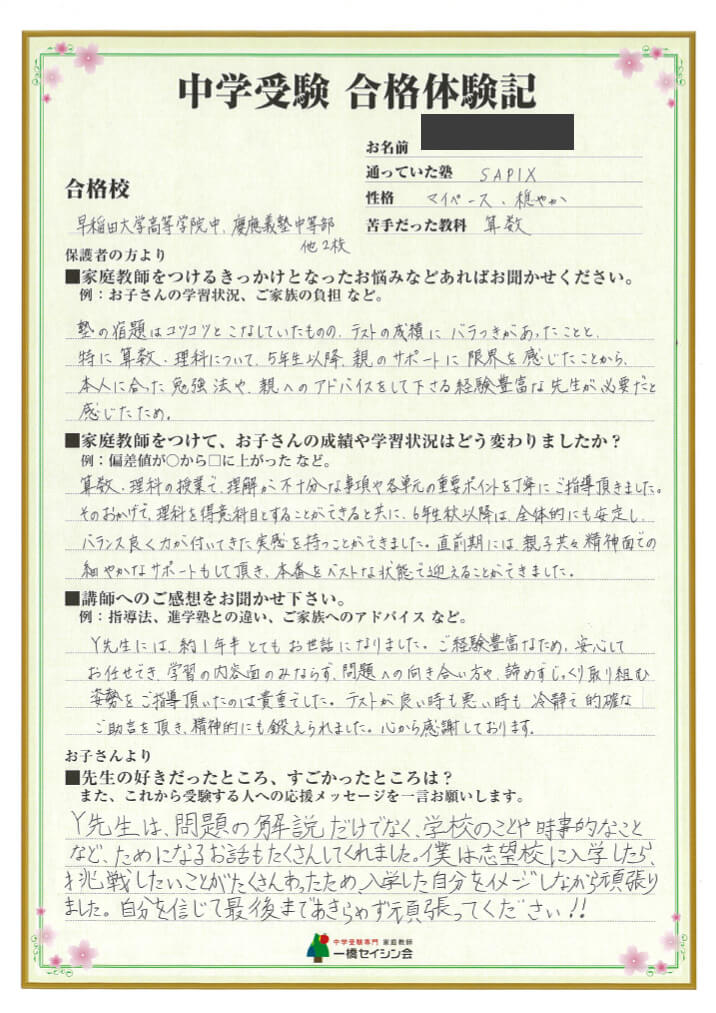 中学受験 合格体験記
お名前
通っていた塾 SAPIX
合格校
性格 マイペース、穏やか
早稲田大学高等学院中、慶應義塾中等部
他2校
苦手だった教科 算数
保護者の方より
■家庭教師をつけるきっかけとなったお悩みなどあればお聞かせください。
例：お子さんの学習状況、ご家族の負担 など。
塾の宿題はコツコツとこなしていたものの、テストの成績にバラつきがあったことと、
特に算数・理科について、5年生以降、親のサポートに限界を感じたことから、
本人に合った勉強法や、親へのアドバイスをして下さる経験豊富な先生が必要だと
感じたため。
■家庭教師をつけて、お子さんの成績や学習状況はどう変わりましたか？
例：偏差値が○から□に上がった など。
算数・理科の授業で、理解が不十分な事項や各単元の重要ポイントを丁寧にご指導頂きました。
そのおかげで、理科を得意科目とすることができると共に、6年生秋以降は、全体的にも安定し、
バランス良く力が付いてきた実感を持つことができました。直前期には、親子共々精神面での
細やかなサポートもして頂き、本番をベストな状態で迎えることができました。
■講師へのご感想をお聞かせ下さい。
例：指導法、進学塾との違い、ご家族へのアドバイス など。
Y先生には、約1年半とてもお世話になりました。ご経験豊富なため、安心して
お任せでき、学習の内容面のみならず、問題への向き合い方や、諦めずじっくり取り組む
姿勢をご指導頂いたのは貴重でした。テストが良い時も悪い時も、冷静で的確な
ご助言を頂き、精神的にも鍛えられました。心から感謝しております。
お子さんより
■先生の好きだったところ、すごかったところは？
また、これから受験する人への応援メッセージを一言お願いします。
Y先生は、問題の解説だけでなく、学校のことや時事的なこと
など、ためになるお話もたくさんしてくれました。僕は志望校に入学したら、
挑戦したいことがたくさんあったため、入学した自分をイメージしながら頑張り
ました。自分を信じて最後まであきらめず頑張ってください!!
中学受験専門 家庭教師
一橋セイシン会